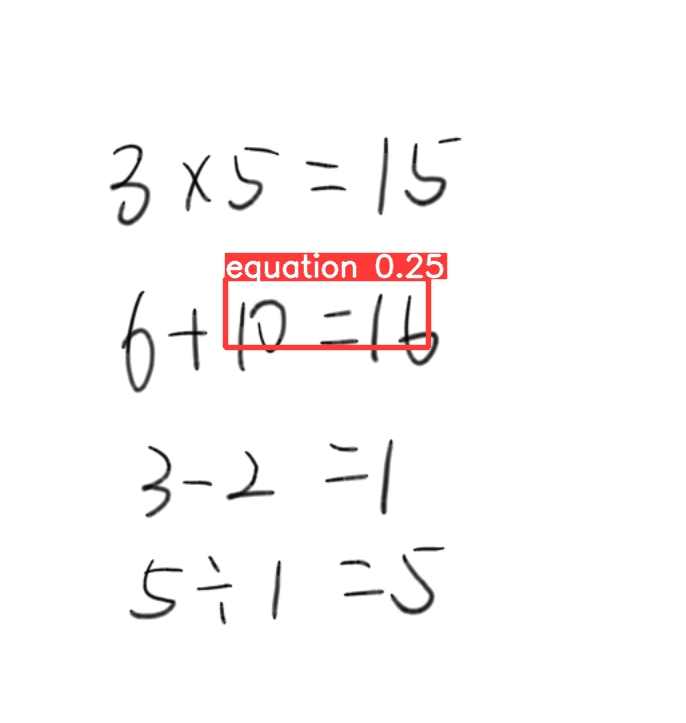 3×5=15
equation 0.25
6+10=16
3-2=1
5÷1=5